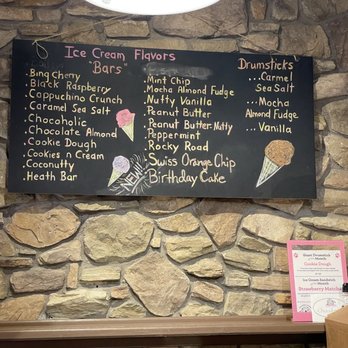 Ice Cream Flavors
"Bars"
Bing Cherry
Black Raspberry
Cappuchino Crunch
Caramel Sea Salt
Chocoholic
Chocolate Almond
Cookie Dough
Cookies n Cream
Coconutty
Heath Bar
Mint Chip
Mocha Almond Fudge
Nutty Vanilla
Peanut Butter
Peanut Butter Nutty
Peppermint
Rocky Road
NEW!
Swiss Orange Chip
Birthday Cake
Drumsticks
...Carmel
Sea Salt
...Mocha
Almond Fudge
...Vanilla
Giant Drumstick
of the Month
Cookie Dough
Ice Cream Sandwich
of the Month
Strawberry Matcha